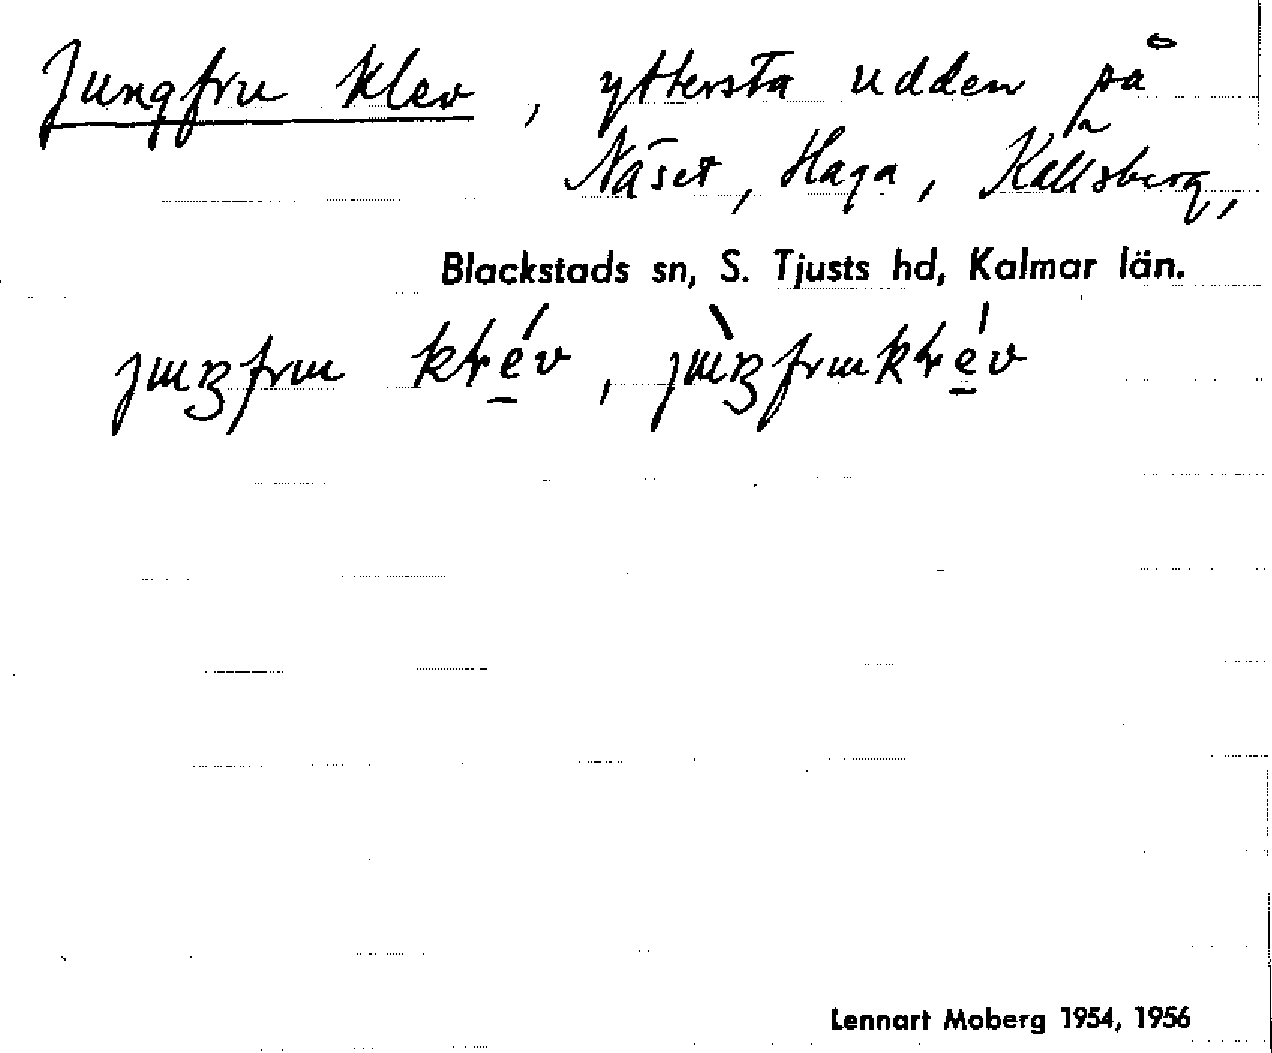 Jungfru klev, yttersta udden på
Näset, Haga, Källsberg,
Blackstads sn, S. Tjusts hd, Kalmar län.
Lennart Moberg 1954, 1956